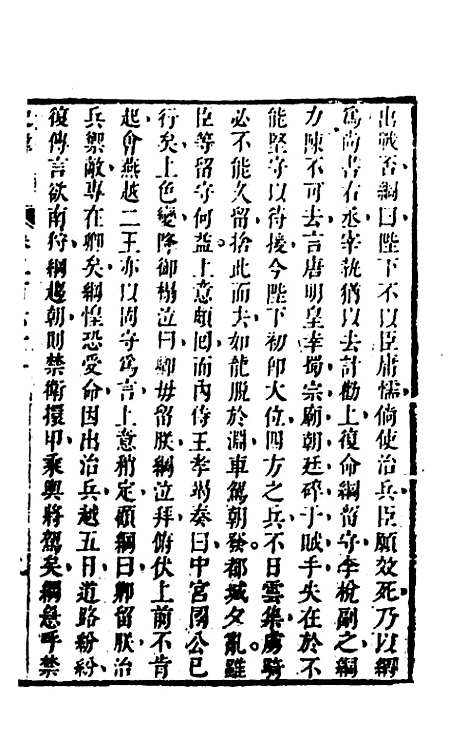 出戰否綱曰陛下不以臣庸懦倘使治兵臣願效死乃以綱
爲尚書右丞宰執猶以去計勸上復命綱留守李梲副之綱
力陳不可去言唐明皇幸蜀宗廟朝廷碎于賊手失在於不
能堅守以待援今陛下初即大位四方之兵不日雲集虜騎
必不能久留捨此而去如龍脫於淵車駕朝發都城夕亂雖
臣等留守何益上意頗囘而內侍王孝竭奏曰中宮國公已
行矣上色變降御榻泣曰卿毋留朕綱泣拜俯伏上前不肯
起會燕越二王亦以固守爲言上意稍定顧綱曰卿留朕治
兵禦敵專在卿矣綱惶恐受命因出治兵越五日道路紛紛
復傳言欲南狩綱趨朝則禁衛擐甲乘輿將駕矣綱急呼禁